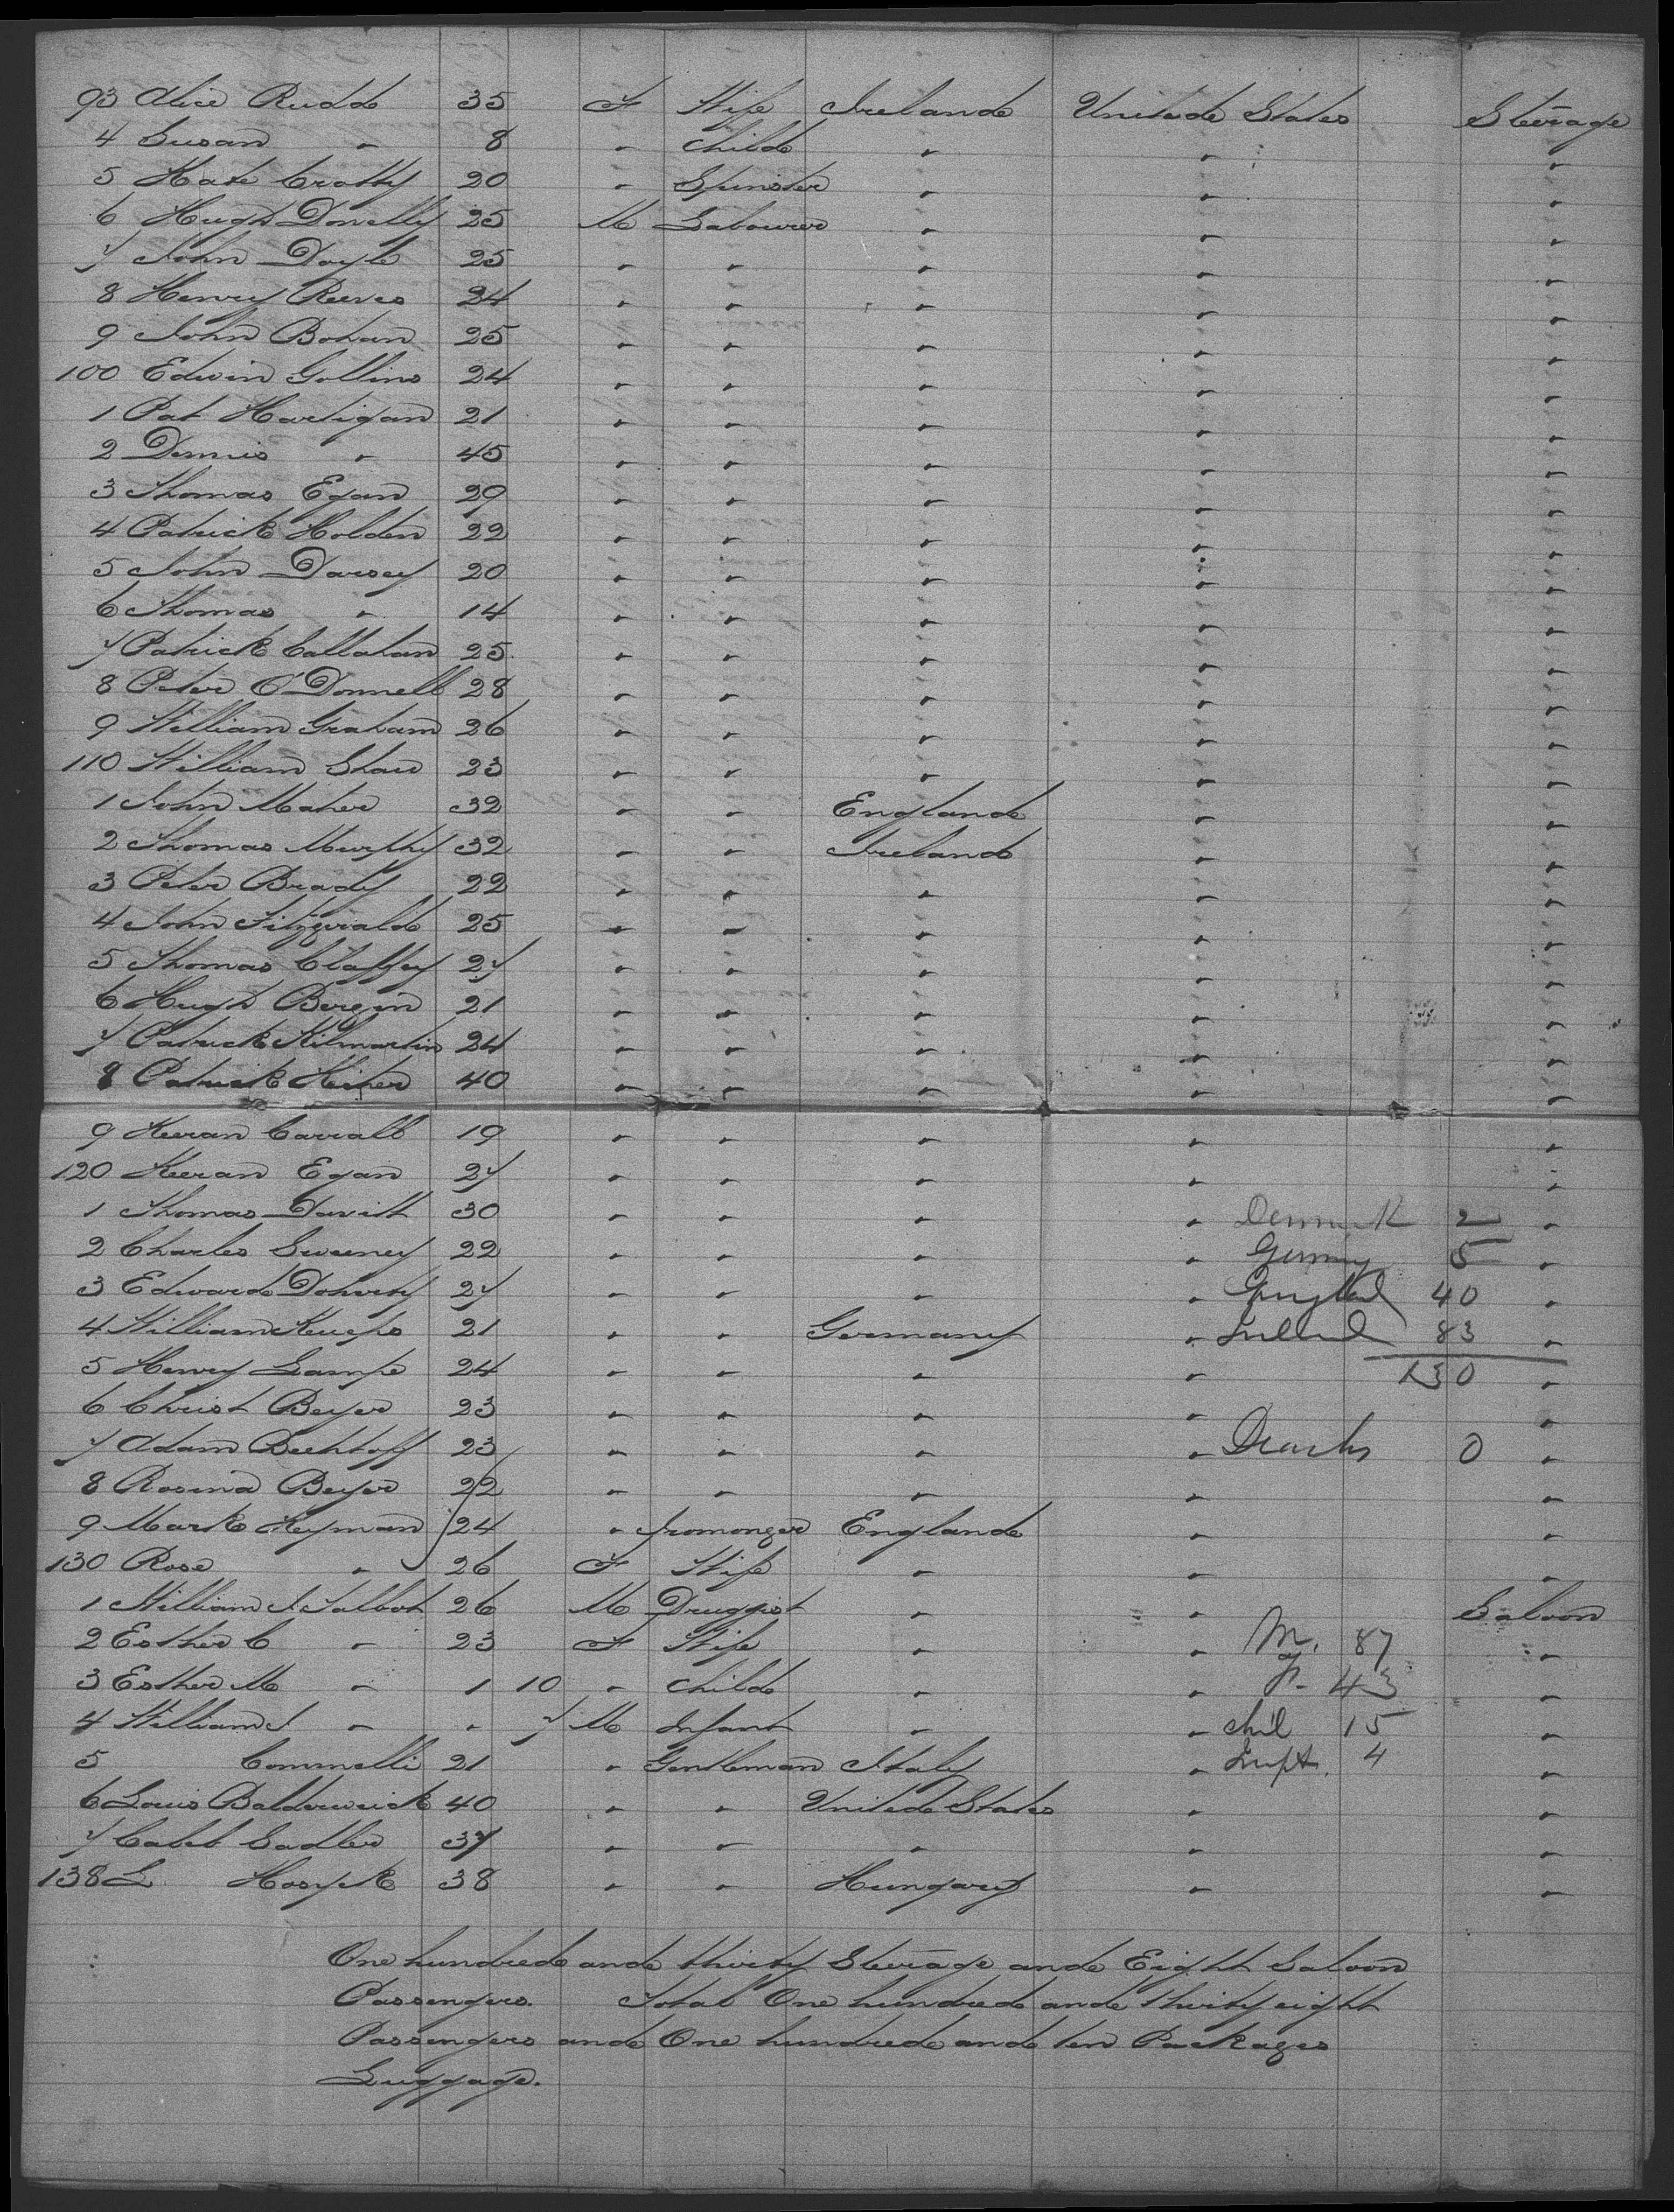 93 Alice Rudd 35 F Wife Ireland United States Steerage
4 Susan " 8 " Child " " "
5 Kate Crotty 20 " Spinster " " "
6 Hugh Donelly 25 M Labourer " " "
7 John Doyle 25 " " " " "
8 Henry Reeves 24 " " " " "
9 John Bohan 25 " " " " "
100 Edwin Gollins 24 " " " " "
1 Pat Hartigan 21 " " " " "
2 Dennis " 45 " " " " "
3 Thomas Egan 29 " " " " "
4 Patrick Holden 22 " " " " "
5 John Darsey 20 " " " " "
6 Thomas " 14 " " " " "
7 Patrick Callahan 25 " " " " "
8 Peter O'Donnell 28 " " " " "
9 William Graham 26 " " " " "
110 William Shaw 23 " " " " "
1 John Maher 32 " " England " "
2 Thomas Murphy 32 " " Ireland " "
3 Peter Brady 22 " " " " "
4 John Fitzgerald 25 " " " " "
5 Thomas Claffey 27 " " " " "
6 Hugh Bergin 21 " " " " "
7 Patrick Kilmartin 24 " " " " "
8 Patrick 40 " " " " "
9 Keeran Carroll 19 " " " " "
120 Keeran Egan 27 " " " " "
1 Thomas Davitt 30 " " " " Denmark 2 "
2 Charles Sweeney 22 " " " " Germy 5 "
3 Edward Doherty 27 " " " " England 40 "
4 William 21 " " Germany " Ireland 83 "
5 Henry Lampe 24 " " " " 130 "
6 Christ Beyer 23 " " " " "
7 Adam Bechtoff 23 " " " " Deaths 0 "
8 Rosina Beyer 22 " " " " "
9 Mark Heyman 24 " Iromonger England " "
130 Rose " 26 F Wife " " "
1 William J Talbot 26 M Druggist " " Saloon
2 Esther C " 23 F Wife " " M. 87 "
3 Esther M " 1 10 " Child " " F. 43 "
4 William J " " 7 M Infant " " chil 15 "
5 Commelli 21 " Gentleman Italy " Inft. 4 "
6 Louis Balderwick 40 " " United States " "
7 Caleb Sadler 37 " " " " "
138 L 38 " " Hungary " "
One hundred and thirty Steerage and Eight Saloon
Passengers. Total One hundred and thirty eight
Passengers and One hundred and ten Packages
Luggage.